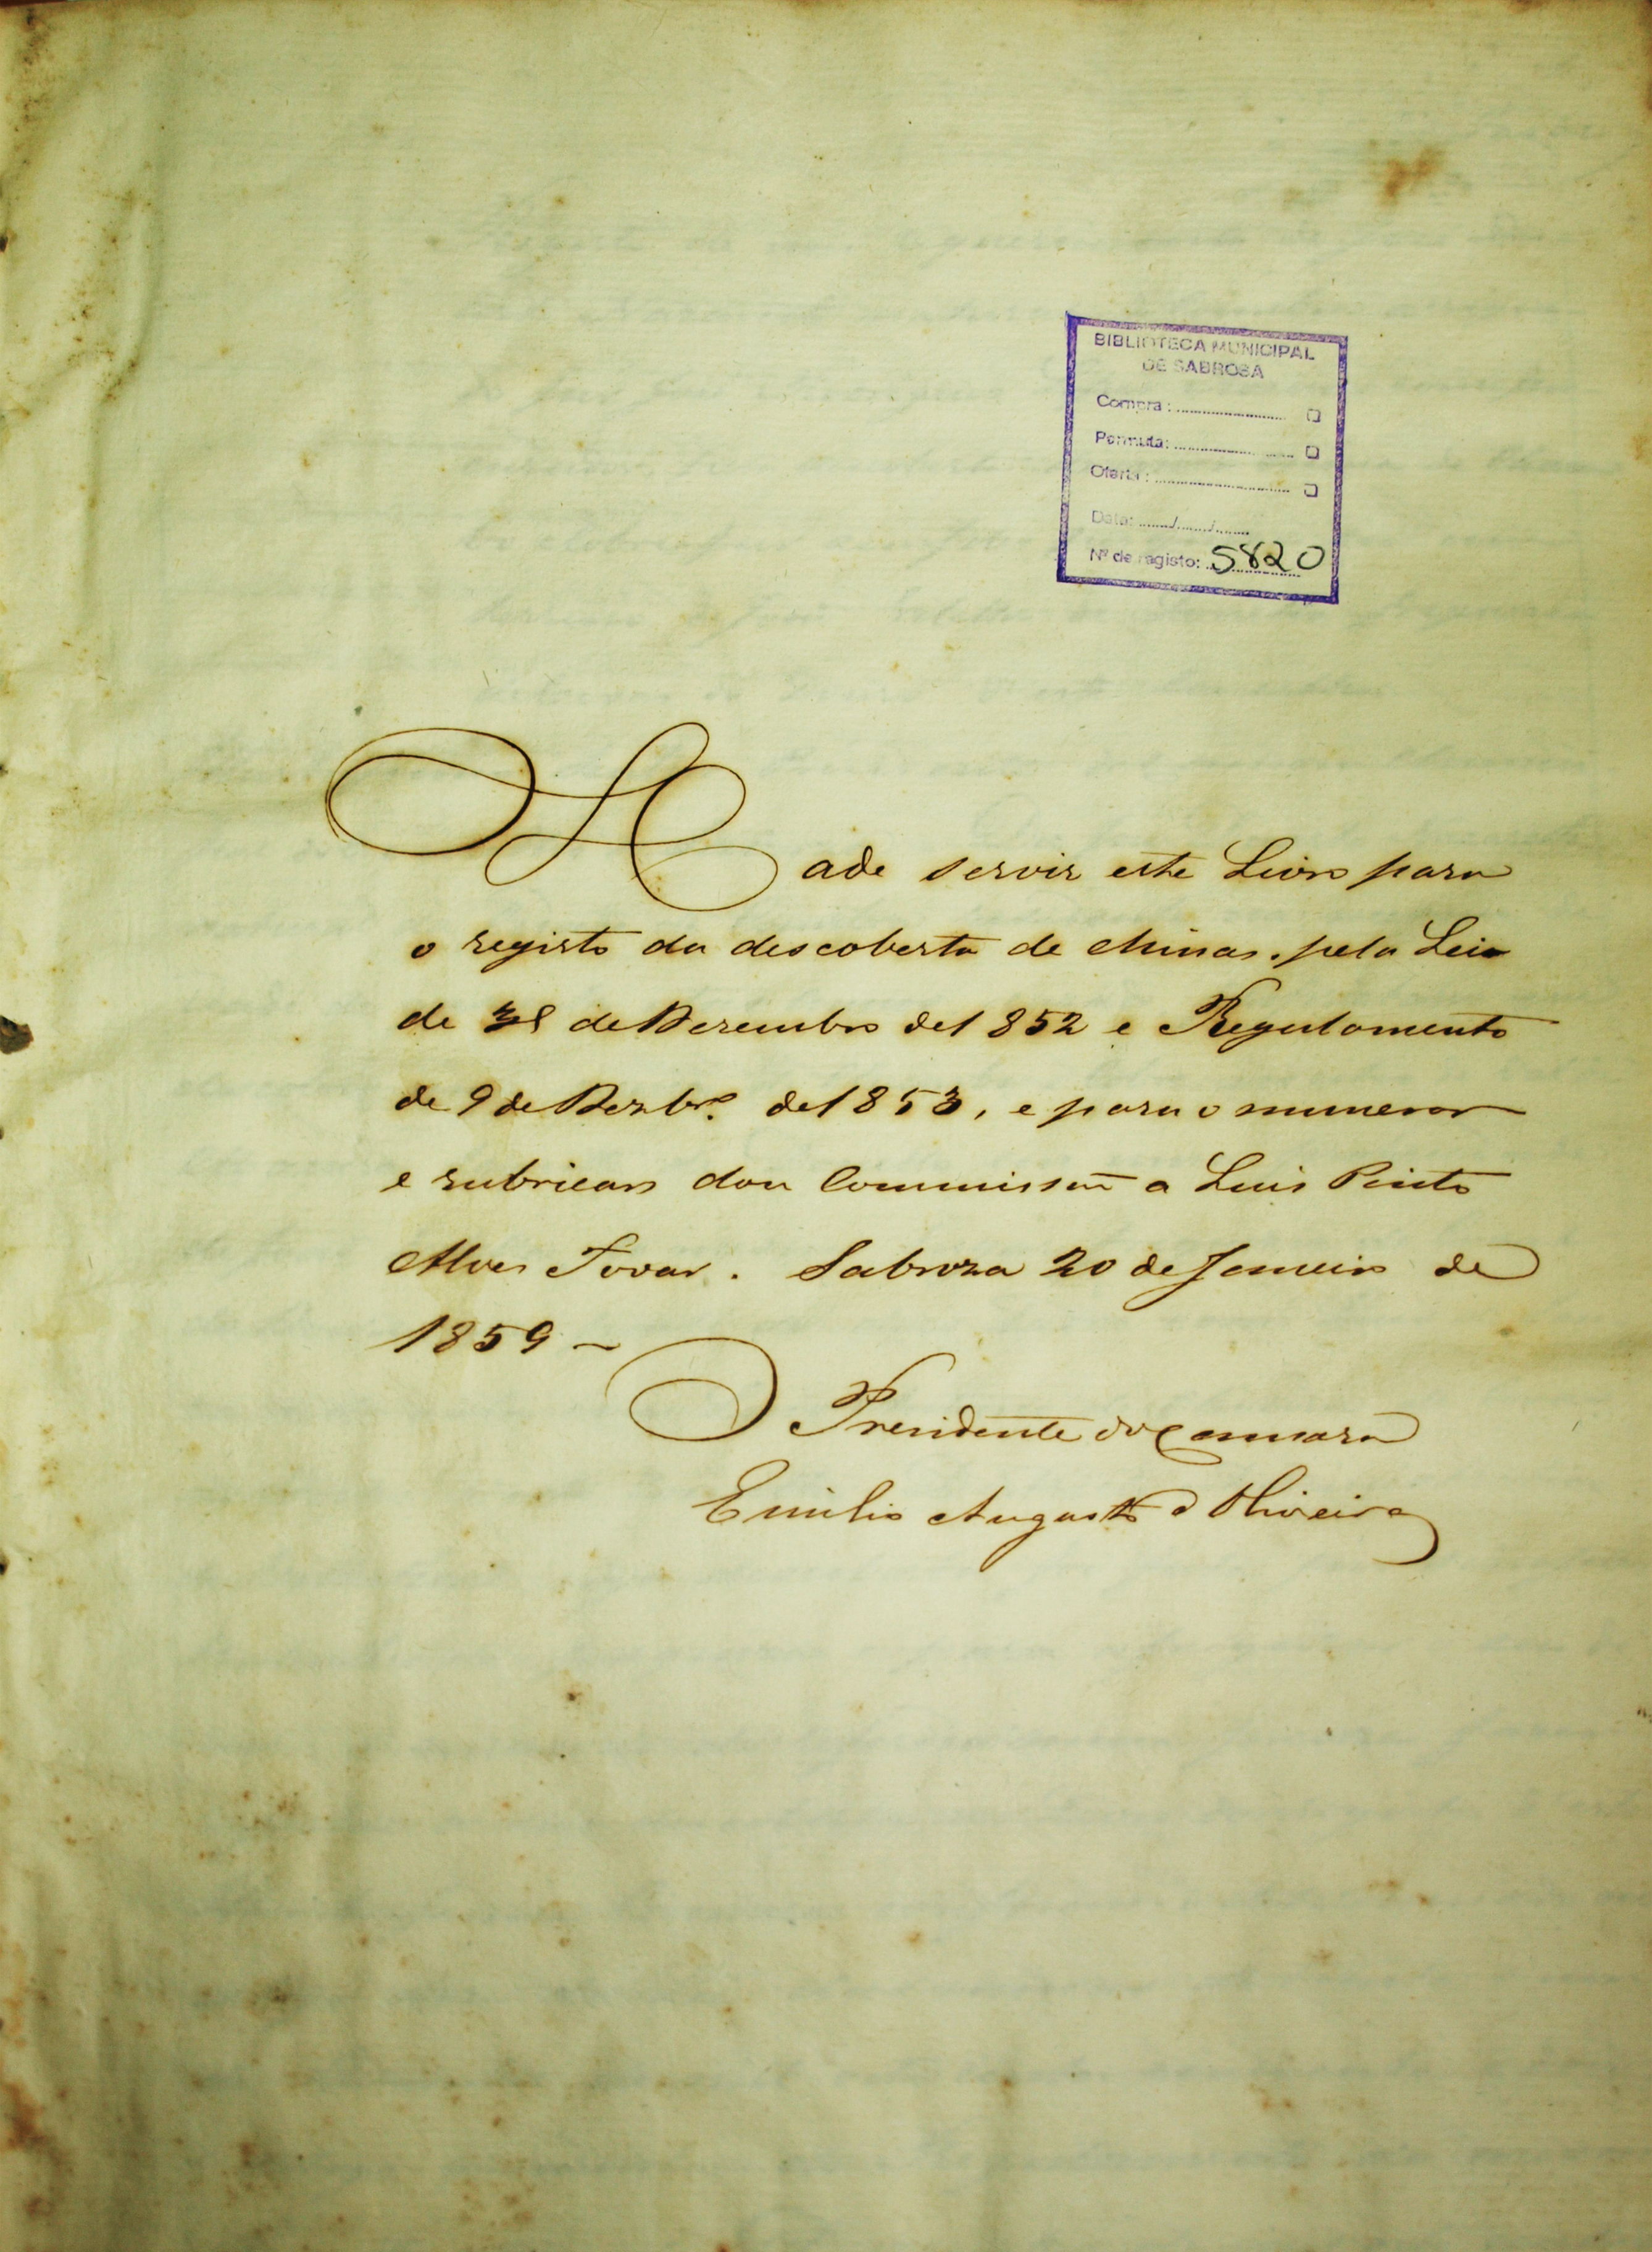 BIBLIOTECA MUNICIPAL
DE SABROSA
Compra :
Permuta:
Oferta :
Data: ..../..../....
Nº de registo: 5820
Hade servir este Livro para
o registo da descoberta de Minas, pela Lei
de 31 de Dezembro de 1852 e Regulamento
de 9 de Dezbrº de 1853, e para o numerar
e rubricar dou Commissão a Luis Pinto
Alves Tovar. Sabroza 20 de Janeiro de
1859 ~
O Presidente da Camara
Emilio Augusto d'Oliveira